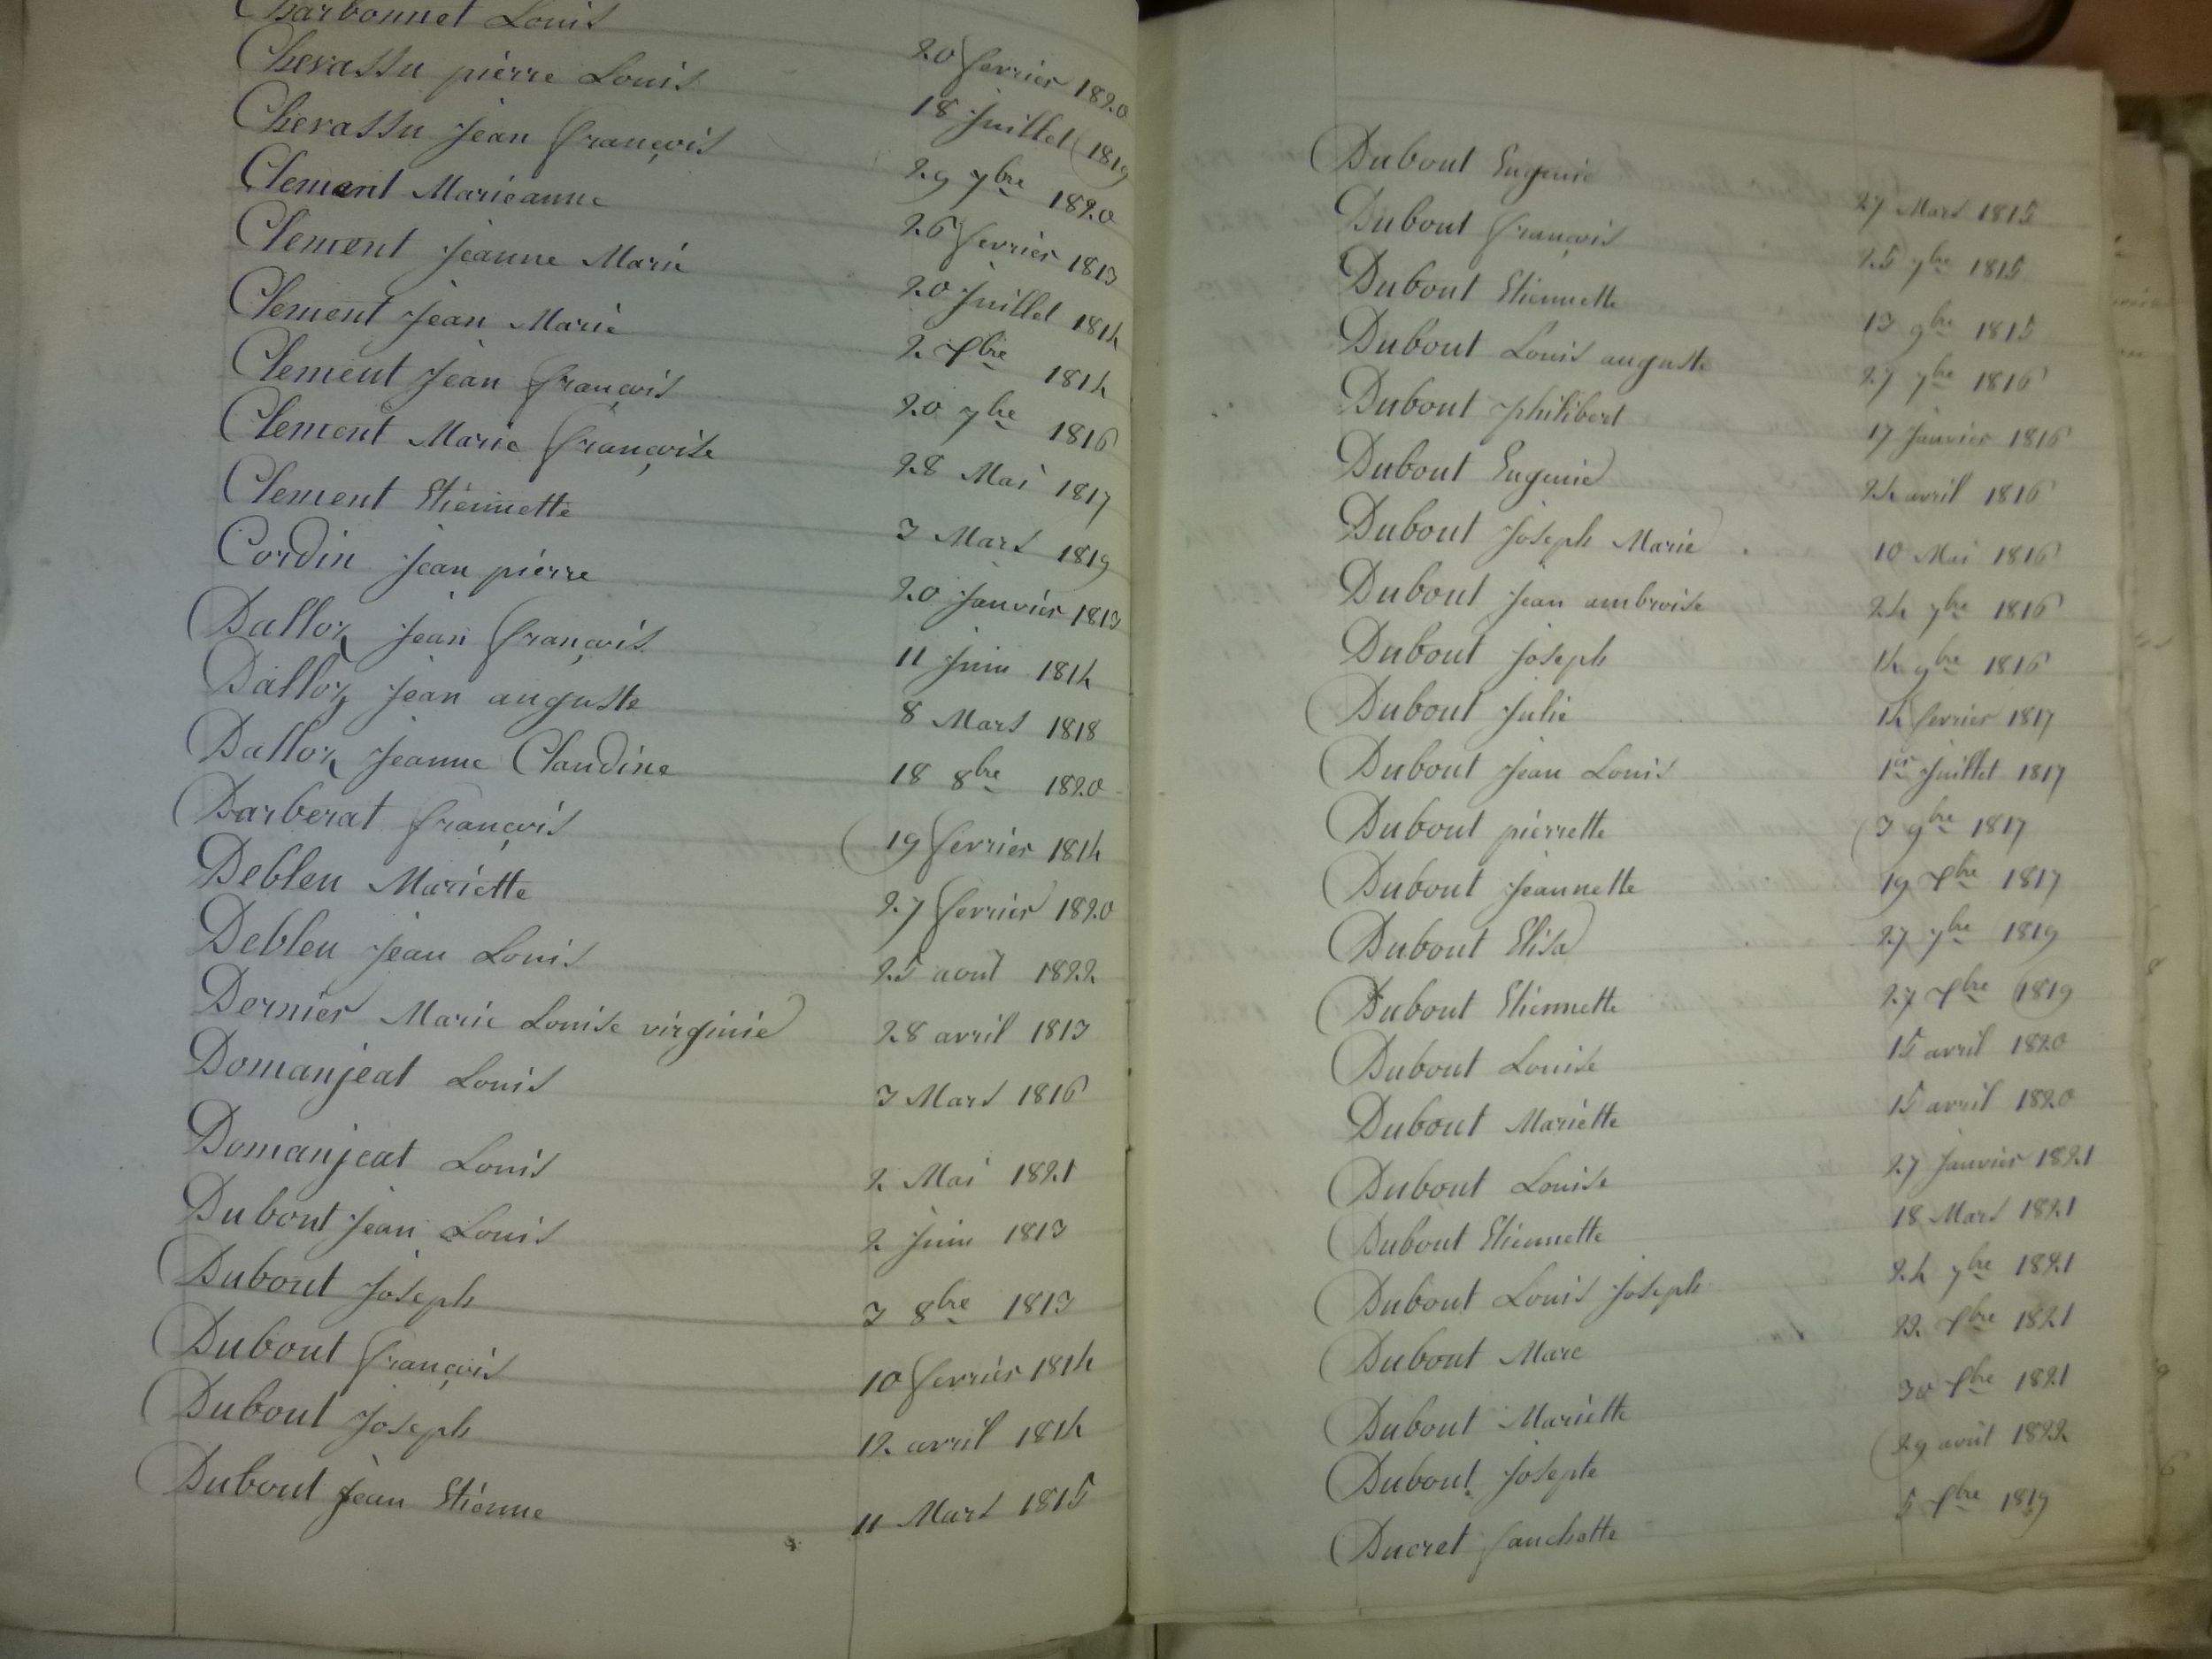 Charbonnet Louis 20 fevrier 1820
Chevassu pierre Louis 18 Juillet 1819
Chevassu Jean françois 29 7bre 1820
Clement Marieanne 26 fevrier 1813
Clement Jeanne Marie 20 Juillet 1814
Clement Jean Marie 2 Xbre 1814
Clement Jean françois 20 7bre 1816
Clement Marie françoise 28 Mai 1817
Clement Etiennette 3 Mars 1819
Cordin Jean pierre 20 Janvier 1813
Dalloz Jean françois 11 Juin 1814
Dalloz Jean auguste 8 Mars 1818
Dalloz Jeanne Claudine 18 8bre 1820
Darberat françois 19 fevrier 1814
Debleu Mariette 27 fevrier 1820
Debleu Jean Louis 25 aout 1822
Dernier Marie Louise virginie 28 avril 1813
Domanjeat Louis 3 Mars 1816
Domanjeat Louis 2 Mai 1821
Dubout Jean Louis 2 Juin 1813
Dubout Joseph 3 8bre 1813
Dubout françois 10 fevrier 1814
Dubout Joseph 12 avril 1814
Dubout Jean Etienne 11 Mars 1815
Dubout Eugenie 27 Mars 1815
Dubout françois 25 7bre 1815
Dubout Etiennette 13 9bre 1815
Dubout Louis auguste 27 7bre 1816
Dubout philibert 17 Janvier 1816
Dubout Eugenie 24 avril 1816
Dubout Joseph Marie 10 Mai 1816
Dubout Jean ambroise 24 7bre 1816
Dubout Joseph 14 9bre 1816
Dubout Julie 14 fevrier 1817
Dubout Jean Louis 1er Juillet 1817
Dubout pierrette 3 9bre 1817
Dubout Jeannette 19 Xbre 1817
Dubout Elisa 27 7bre 1819
Dubout Etiennette 27 Xbre 1819
Dubout Louise 15 avril 1820
Dubout Mariette 15 avril 1820
Dubout Louise 27 Janvier 1821
Dubout Etiennette 18 Mars 1821
Dubout Louis Joseph 24 7bre 1821
Dubout Marc 22 Xbre 1821
Dubout Mariette 30 Xbre 1821
Dubout Josepte 29 août 1822
Ducret fanchette 5 Xbre 1819